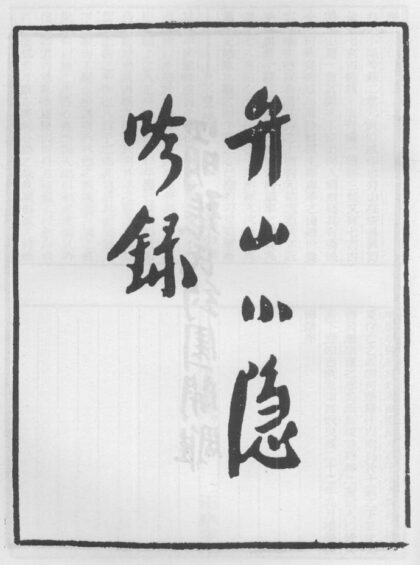 弁山小隐
吟録